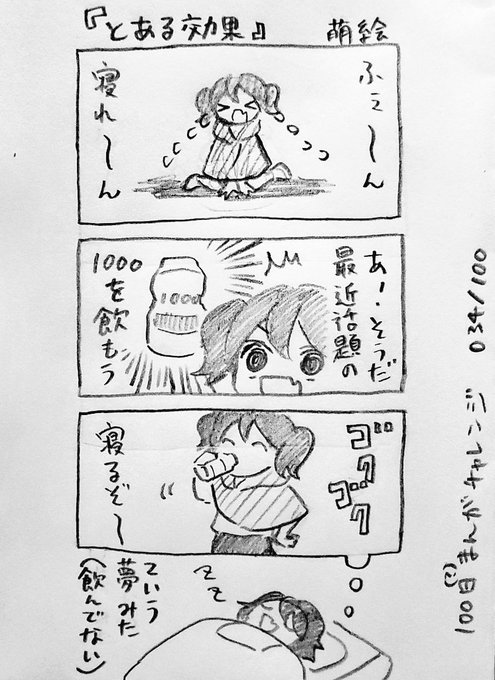 『とある効果』
萌絵
ふえ〜ん
寝れ〜ん
あ！そうだ
最近話題の
1000を飲もう
1000
ゴクゴク
寝るぞ〜
zz
ていう
夢みた
(飲んでない)
100日まんがチャレンジ 034/100